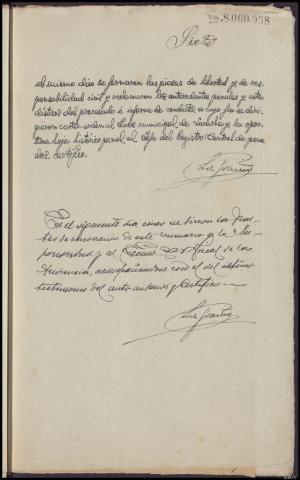 8.060.958
Siete
El mismo dia se formaron las piezas de libertad y de res-
ponsabilidad civil y reclamaron los antecedentes penales y esta-
disticos del procesado é informe de conducta, a cuyo fin se diri-
gieron carta-orden al Juez municipal de y la opor-
tuna hoja histórico penal al Jefe del Registro Central de pena-
dos. Certifico.
En el siguiente dia cinco se
tes de incoacion de este sumario a la Su-
perioridad y al Excmo Sr Fiscal de la
Audiencia, acompañandose con el del
testimonio del auto anterior y certifico